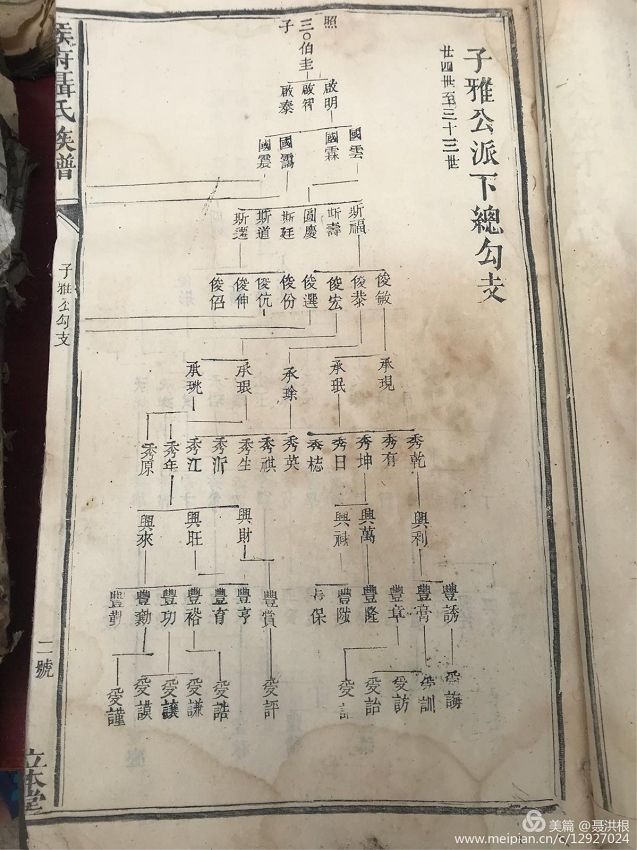 子雅公派下總勾支
廿四世至三十三世
照
三〇伯圭
子
啟明 啟智 啟泰
國雲 國霖 國靄 國震
斯福 斯壽 圓慶 斯廷 斯道 斯選
俊敏 俊恭 俊宏 俊選 俊份 俊伉 俊伸 俊侶
承現 承珉 承珍 承珢 承珧
秀乾 秀有 秀坤 秀日 秀梽 秀英 秀祺 秀生 秀沂 秀江 秀年 秀原
興利 興萬 興 興財 興旺 興來
豐誘 豐膏 豐章 豐隆 豐陞 保 豐賞 豐亨 豐有 豐裕 豐功 豐勳 豐勤
受誨 訓 受訪 受詒 受 受評 受誥 受謙 受讓 受謨 受謹
侯府聶氏族譜
子雅公勾支
二號
立本堂
美篇 @聂洪根
www.meipian.cn/c/12927024